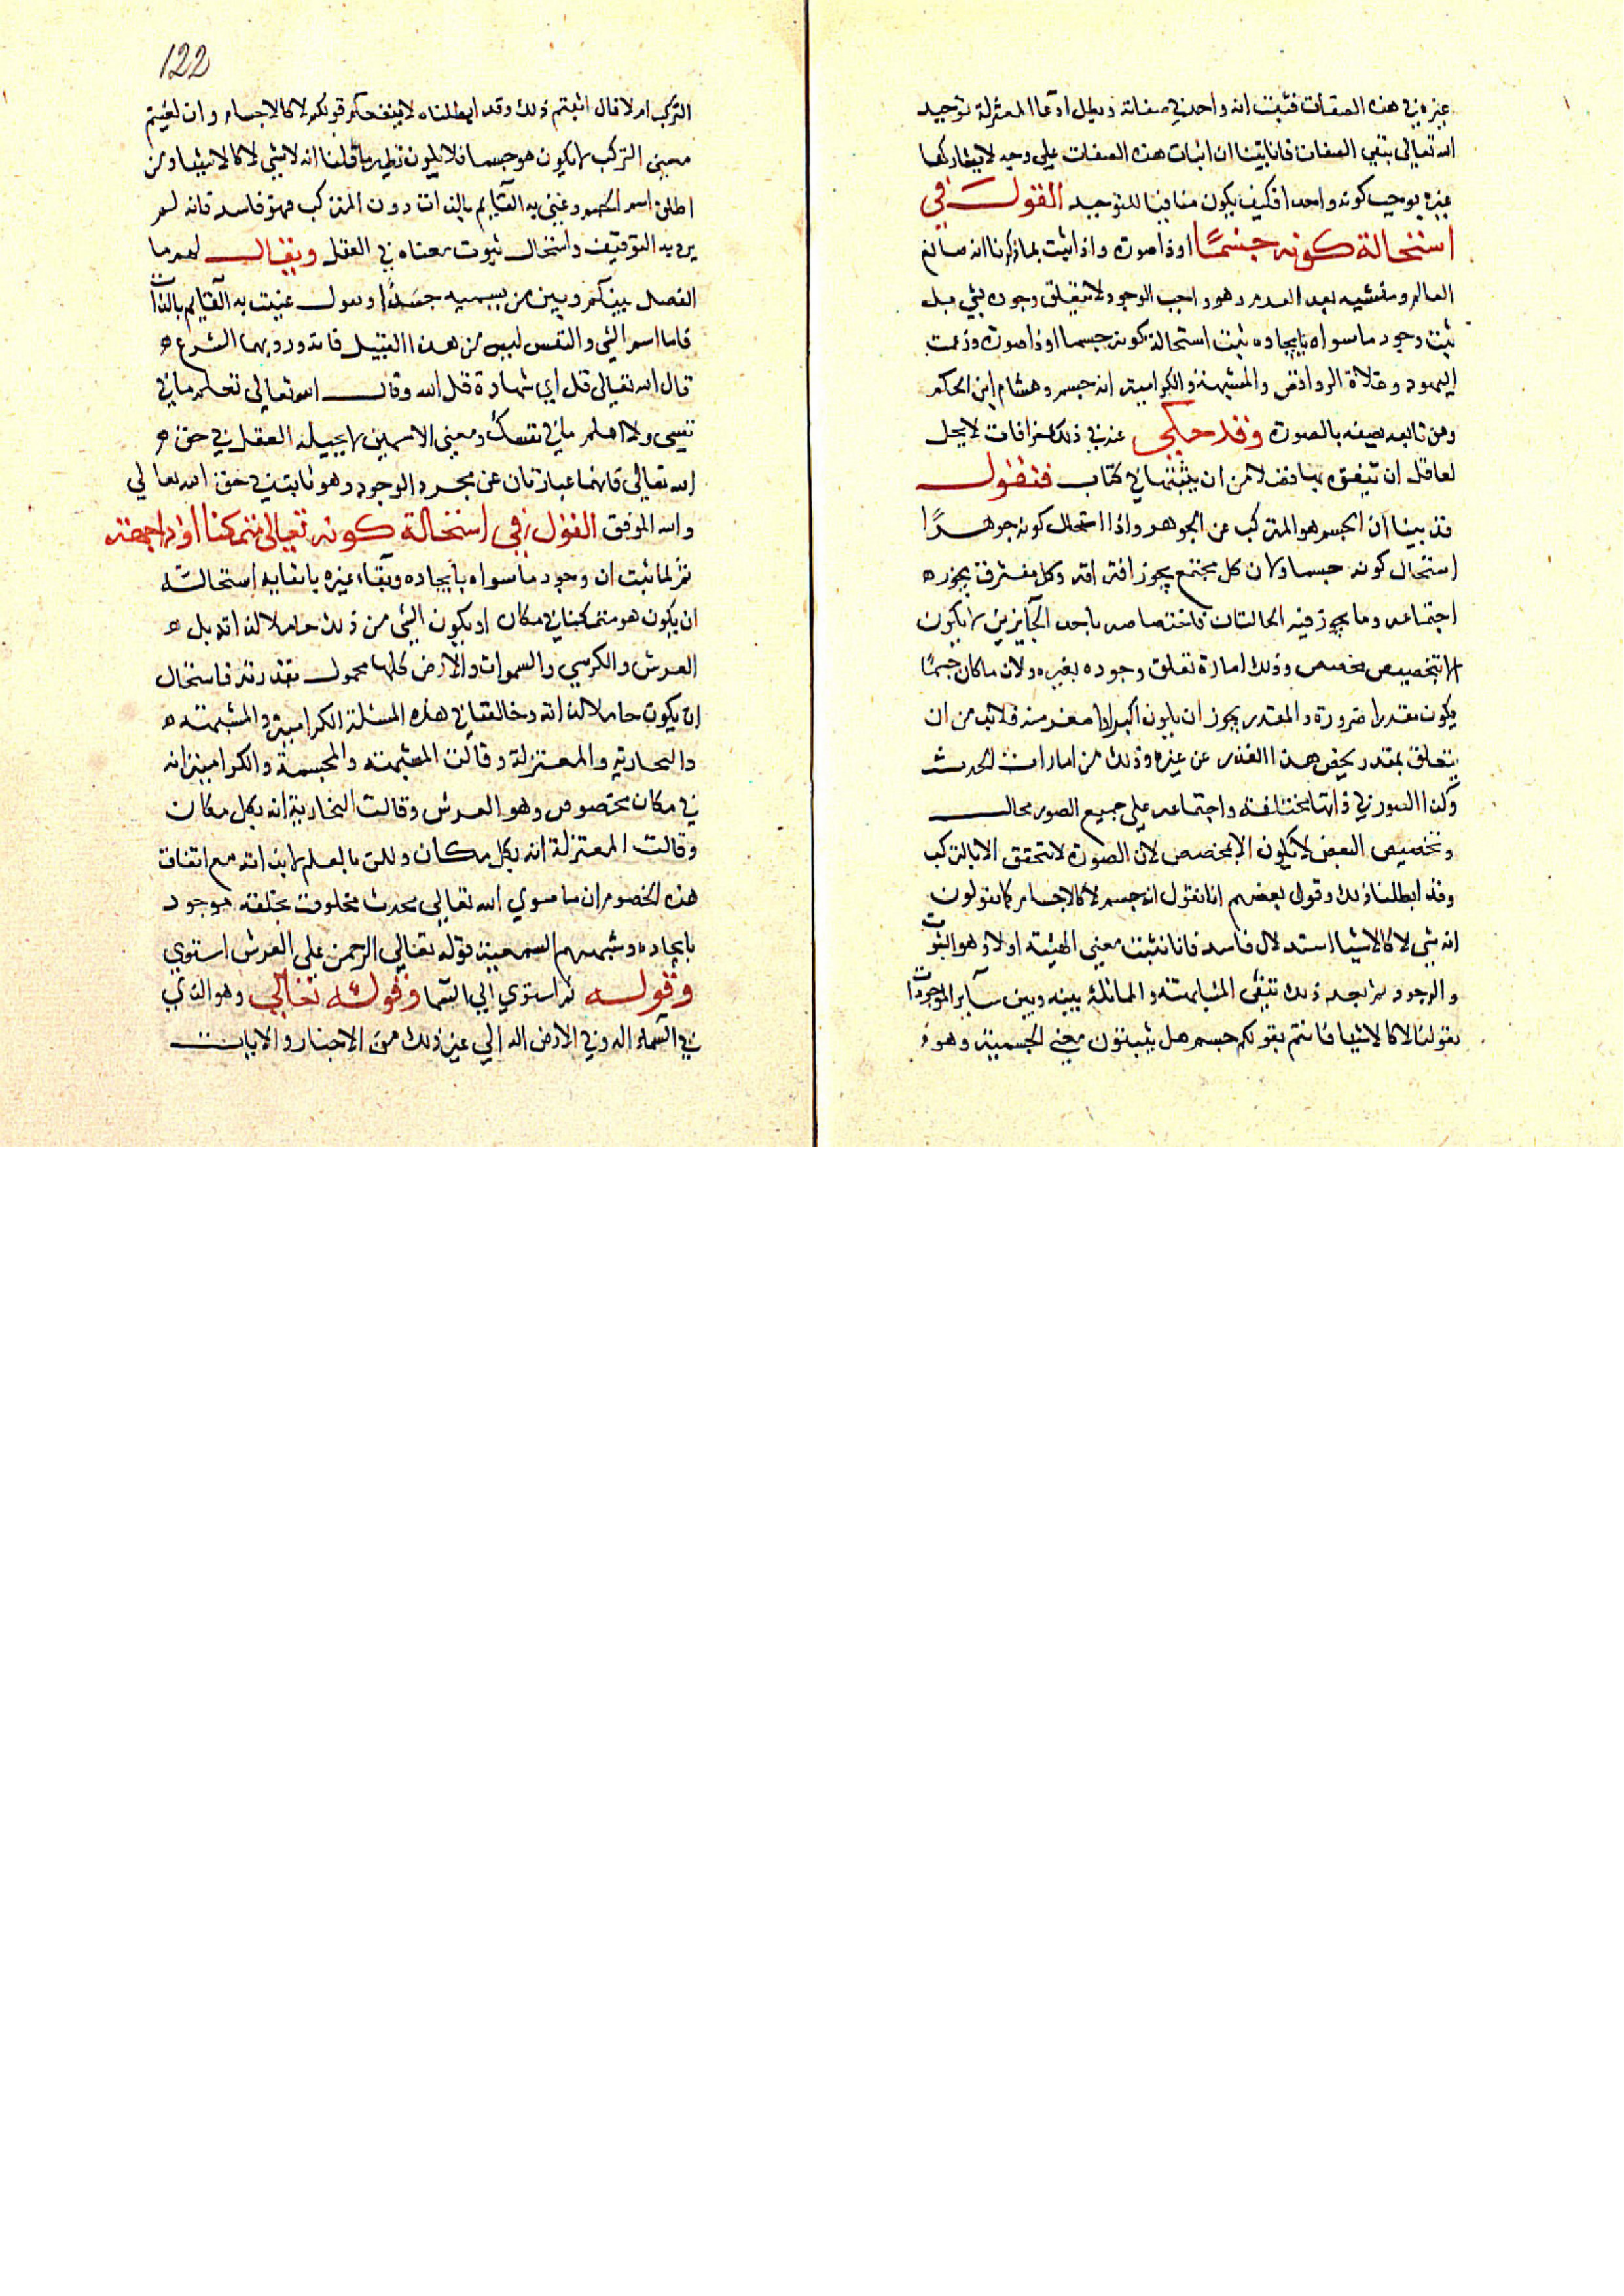 غيره في هذه الصفات فثبت انه واحد في صفاته وبطل ادعا المعتزلة توحيد
الله تعالى بنفي الصفات فانا بينا ان اثبات هذه الصفات على وجه لا يشاركه
غيره يوجب كونه واحدا فكيف يكون منافيا للتوحيد القول في
استحالة كونه جسمًا او ذا صورة واذا ثبت بما ذكرنا انه صانع
العالم ومنشيه بعد العدم وهو واجب الوجود لا يتعلق وجوده بشي بل
ثبت وجود ما سواه بايجاده ثبت استحالة كونه جسما او ذا صورة وزعمت
اليهود وغلاة الروافض والمشبهة والكرامية انه جسم وهشام ابن الحكم
ومن تابعه يصفه بالصورة وقد حكي عنه في ذلك خرافات لا يحل
لعاقل ان يتفوه بها فضلا من ان يثبتها في كتاب فنقول
قد بينا ان الجسم هو المتركب عن الجوهر واذا استحال كونه جوهرًا
استحال كونه جسما ولان كل مجتمع يجوز افتراقه وكل مفترق يجوز
اجتماعه وما يجوز فيه الحالتان فاختصاصه باحد الجايزين لا يكون
الا بتخصيص مخصص وذلك امارة تعلق وجوده بغيره ولان ما كان جسمًا
يكون مقدرا ضرورة والمقدر يجوز ان يكون اكبر او اصغر منه فلا بد من ان
يتعلق بمقدر يخص هذا القدر عن غيره وذلك من امارات الحدث
وكذا الصور في ذاتها مختلفة واجتماعه على جميع الصور محال
وتخصيص البعض لا يكون الا بمخصص لان الصورة لا تتحقق الا بالتركب
وقد ابطلنا ذلك وقول بعضهم انا نقول انه جسم لا كالاجسام كما تقولون
انه شي لا كالاشيا استدلال فاسد فانا نثبت معنى الشيئية اولا وهو الثبوت
والوجود ثم بعد ذلك ننفي المشابهة والمماثلة بينه وبين سآير الموجودات
بقولنا لا كالاشيا فانتم بقولكم جسم هل يثبتون معنى الجسمية وهو
122
التركب ام لا فان اثبتم ذلك وقد ابطلناه لا ينفعكم قولكم لا كالاجسام وان نفيتم
معنى التركب لا يكون هو جسما فلا يكون نظير ما قلنا انه لا شي لا كالاشيا ومن
اطلق اسم الجسم وعنى به القآيم بالذات دون المتركب فهو فاسد فانه لم
يرد به التوقيف واستحال ثبوت معناه في العقل ويقال لهم ما
الفصل بينكم وبين من يسميه جسدًا ويقول عنيت به القآيم بالذات
فاما اسم الشي والنفس ليس من هذا القبيل فانه ورد بهما الشرع
قال الله تعالى قل اي شهادة قل الله وقال الله تعالى تعلم ما في
نفسي ولا اعلم ما في نفسك ومعنى الاسمين لا يحيله العقل في حق
الله تعالى فانهما عبارتان عن مجرد الوجود وهو ثابت في حق الله تعالى
والله الموفق القول في استحالة كونه تعالى متمكنا او ذا جهة
ثم لما ثبت ان وجود ما سواه بايجاده وبقاء غيره بابقايه استحالت
ان يكون هو متمكنا في مكان او يكون الشي من ذلك حاملا لذاته بل
العرش والكرسي والسموات والارض كلها محمول بقدرته فاستحال
ان يكون حاملا لذاته وخالفنا في هذه المسئلة الكرامية والمشبهة
والنجارية والمعتزلة وقالت المشبهة والمجسمة والكرامية انه
في مكان مخصوص وهو العرش وقالت النجارية انه بكل مكان
وقالت المعتزلة انه بكل مكان ولكن بالعلم لا بذاته مع اتفاق
هذه الخصوم ان ما سوى الله تعالى محدث مخلوق بخلقه موجود
بايجاده وشبهتهم السمعية قوله تعالى الرحمن على العرش استوى
وقوله ثم استوى الى السما وقوله تعالى وهو الذي
في السماء اله وفي الارض اله الى غير ذلك من الاخبار والايات